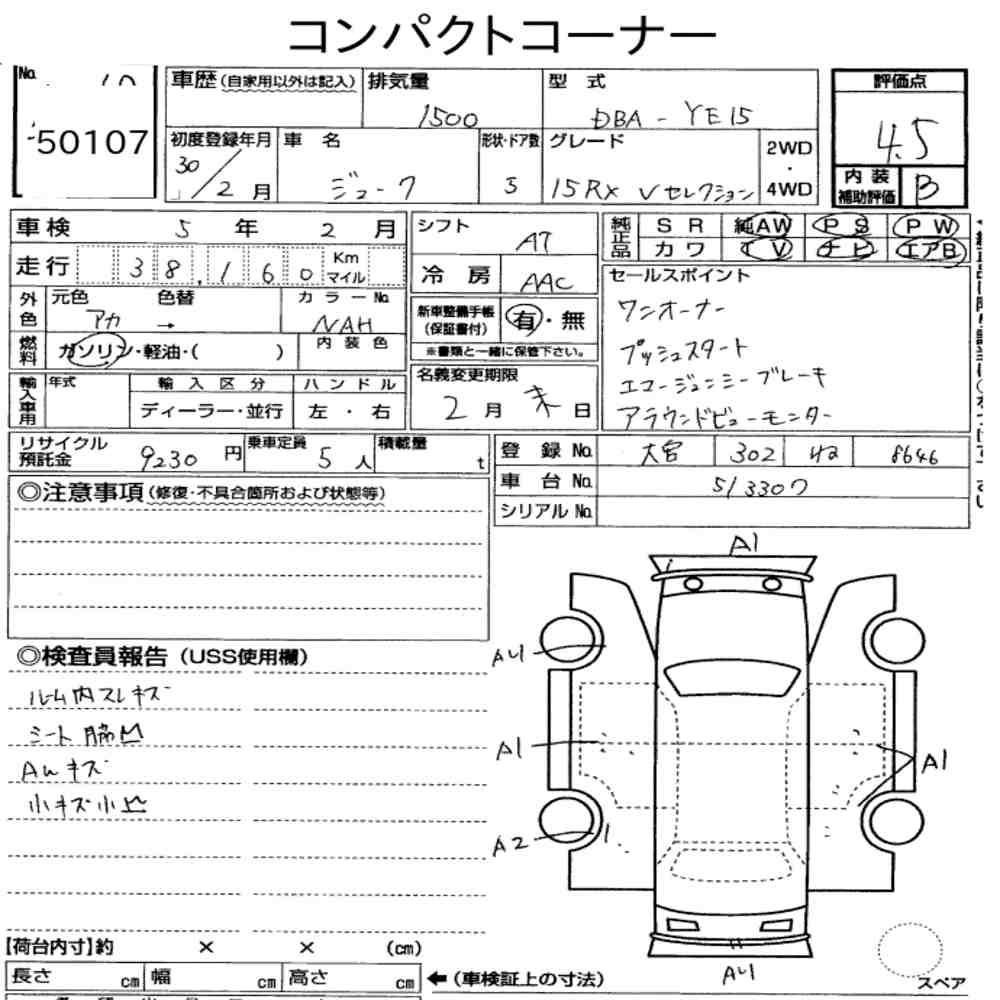 コンパクトコーナー
No.
50107
車歴(自家用以外は記入) 排気量 型式 評価点
1500 DBA - YE15 4.5
初度登録年月 車名 形状・ドア数 グレード 2WD・4WD 内装補助評価 B
30/2月 ジューク 5 15RX Vセレクション
車検 5年 2月 シフト AT 純正品 SR 純AW PS PW
カワ TV ナビ エアB
走行 38,160 Km マイル 冷房 AAC
セールスポイント
外色 元色 色替 カラーNo. 新車整備手帳(保証書付) 有・無
アカ → NAH
ワンオーナー
プッシュスタート
エマージェンシーブレーキ
アラウンドビューモニター
燃料 ガソリン・軽油・( ) 内装色 ※書類と一緒に保管下さい。
輸入車用 年式 輸入区分 ハンドル 名義変更期限
ディーラー・並行 左・右 2月末日
リサイクル預託金 9230円 乗車定員 5人 積載量 t
登録No. 大宮 302 8646
車台No. 513307
シリアルNo.
◎注意事項(修復・不具合箇所および状態等)
◎検査員報告(USS使用欄)
ルーム内スレキズ
シート
AWキズ
小キズ小凹
A1
AU
A1
A1
A2
AU
【荷台内寸】約 × × (cm)
長さ cm 幅 cm 高さ cm ←(車検証上の寸法)
スペア